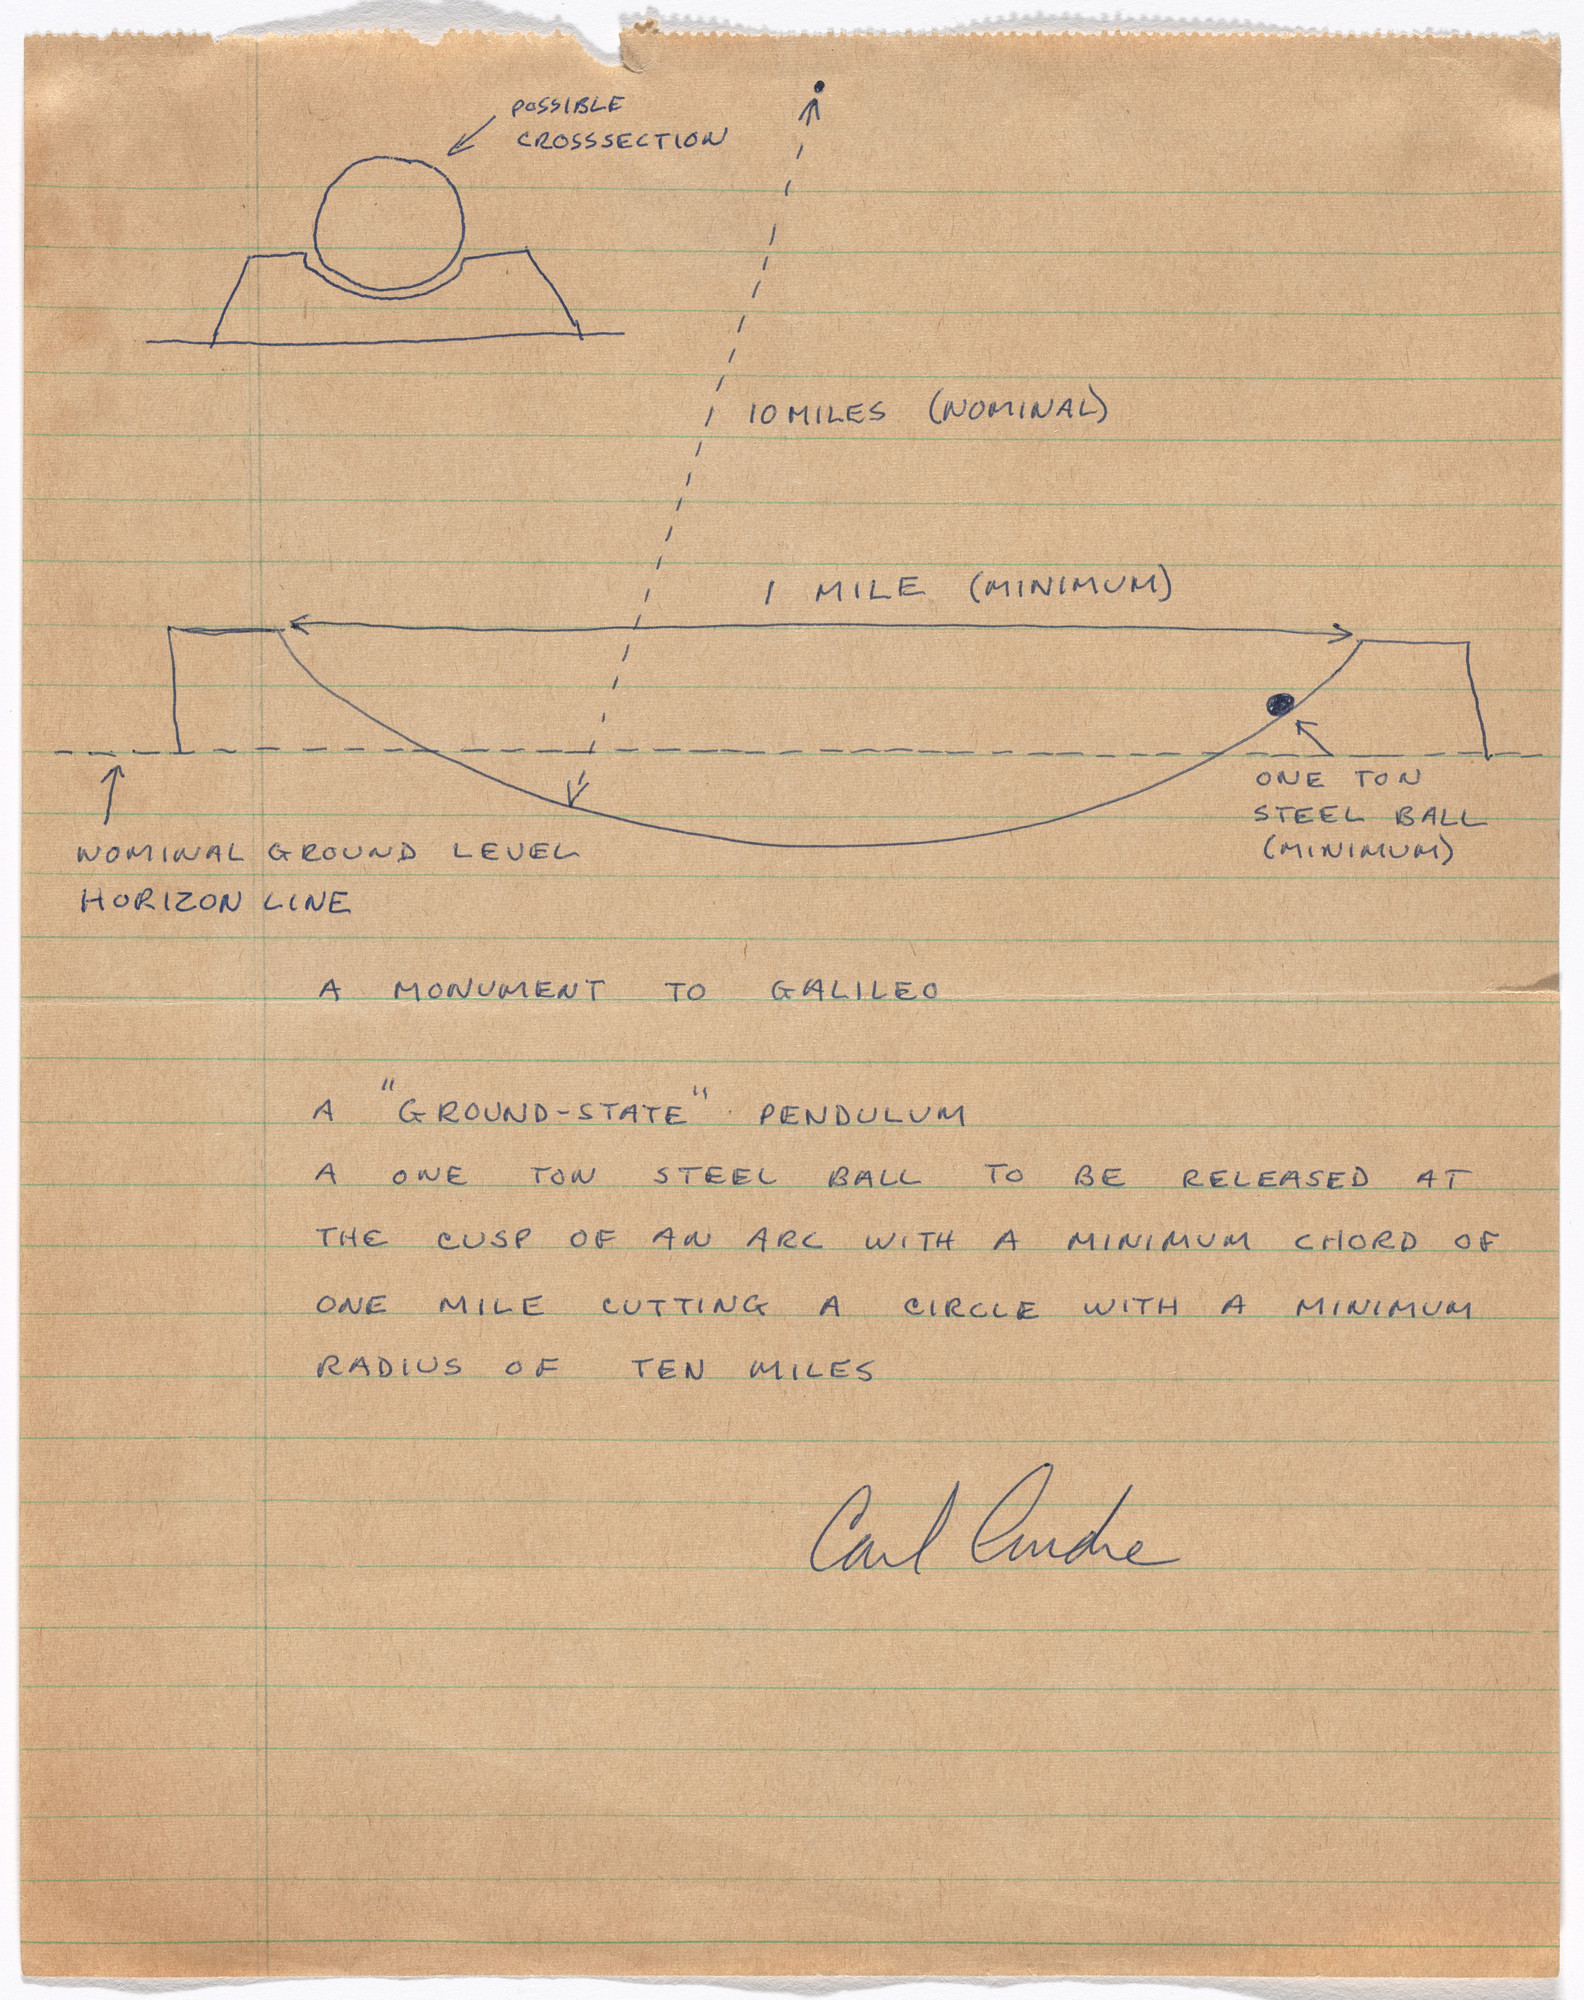 POSSIBLE
CROSSSECTION
10 MILES (NOMINAL)
1 MILE (MINIMUM)
ONE TON
STEEL BALL
(MINIMUM)
NOMINAL GROUND LEVEL
HORIZON LINE
A MONUMENT TO GALILEO
A "GROUND-STATE" PENDULUM
A ONE TON STEEL BALL TO BE RELEASED AT
THE CUSP OF AN ARC WITH A MINIMUM CHORD OF
ONE MILE CUTTING A CIRCLE WITH A MINIMUM
RADIUS OF TEN MILES
Carl Andre